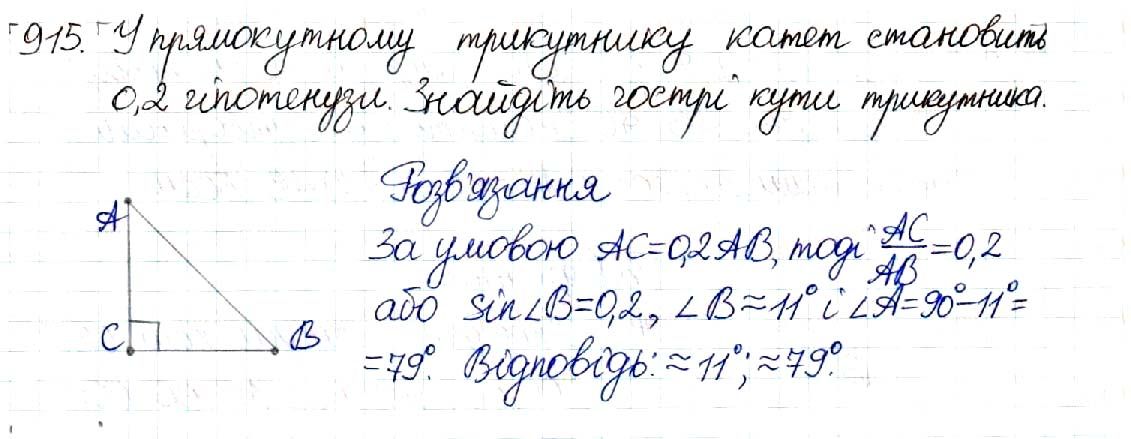 915. У прямокутному трикутнику катет становить
0,2 гіпотенузи. Знайдіть гострі кути трикутника.
Розв'язання
A
За умовою AC=0,2AB, тоді AC/AB=0,2
або sin∠B=0,2, ∠B≈11° і ∠A=90°-11°=
C B
=79°. Відповідь: ≈11°; ≈79°.